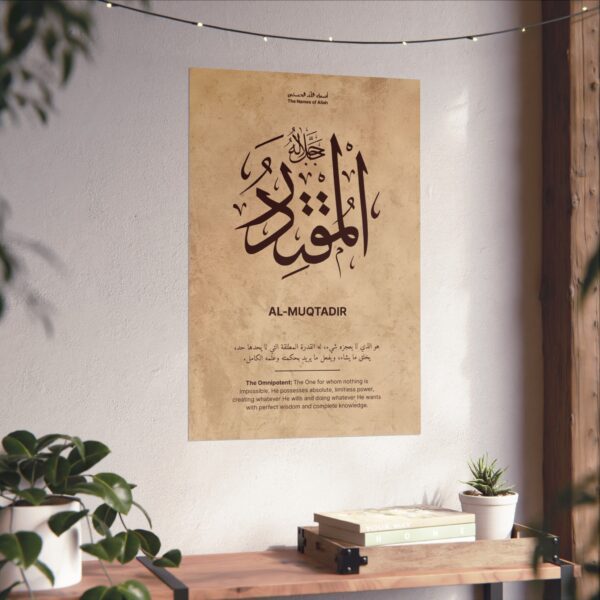 أسماء الله الحسنى
The Names of Allah
جَلَّ جَلَالُهُ
المُقْتَدِرُ
AL-MUQTADIR
هو الذي لا يعجزه شيء، له القدرة المطلقة التي لا يحدها حد،
يخلق ما يشاء، ويفعل ما يريد بحكمته وعلمه الكامل.
The Omnipotent: The One for whom nothing is
impossible. He possesses absolute, limitless power,
creating whatever He wills and doing whatever He wants
with perfect wisdom and complete knowledge.
HOME